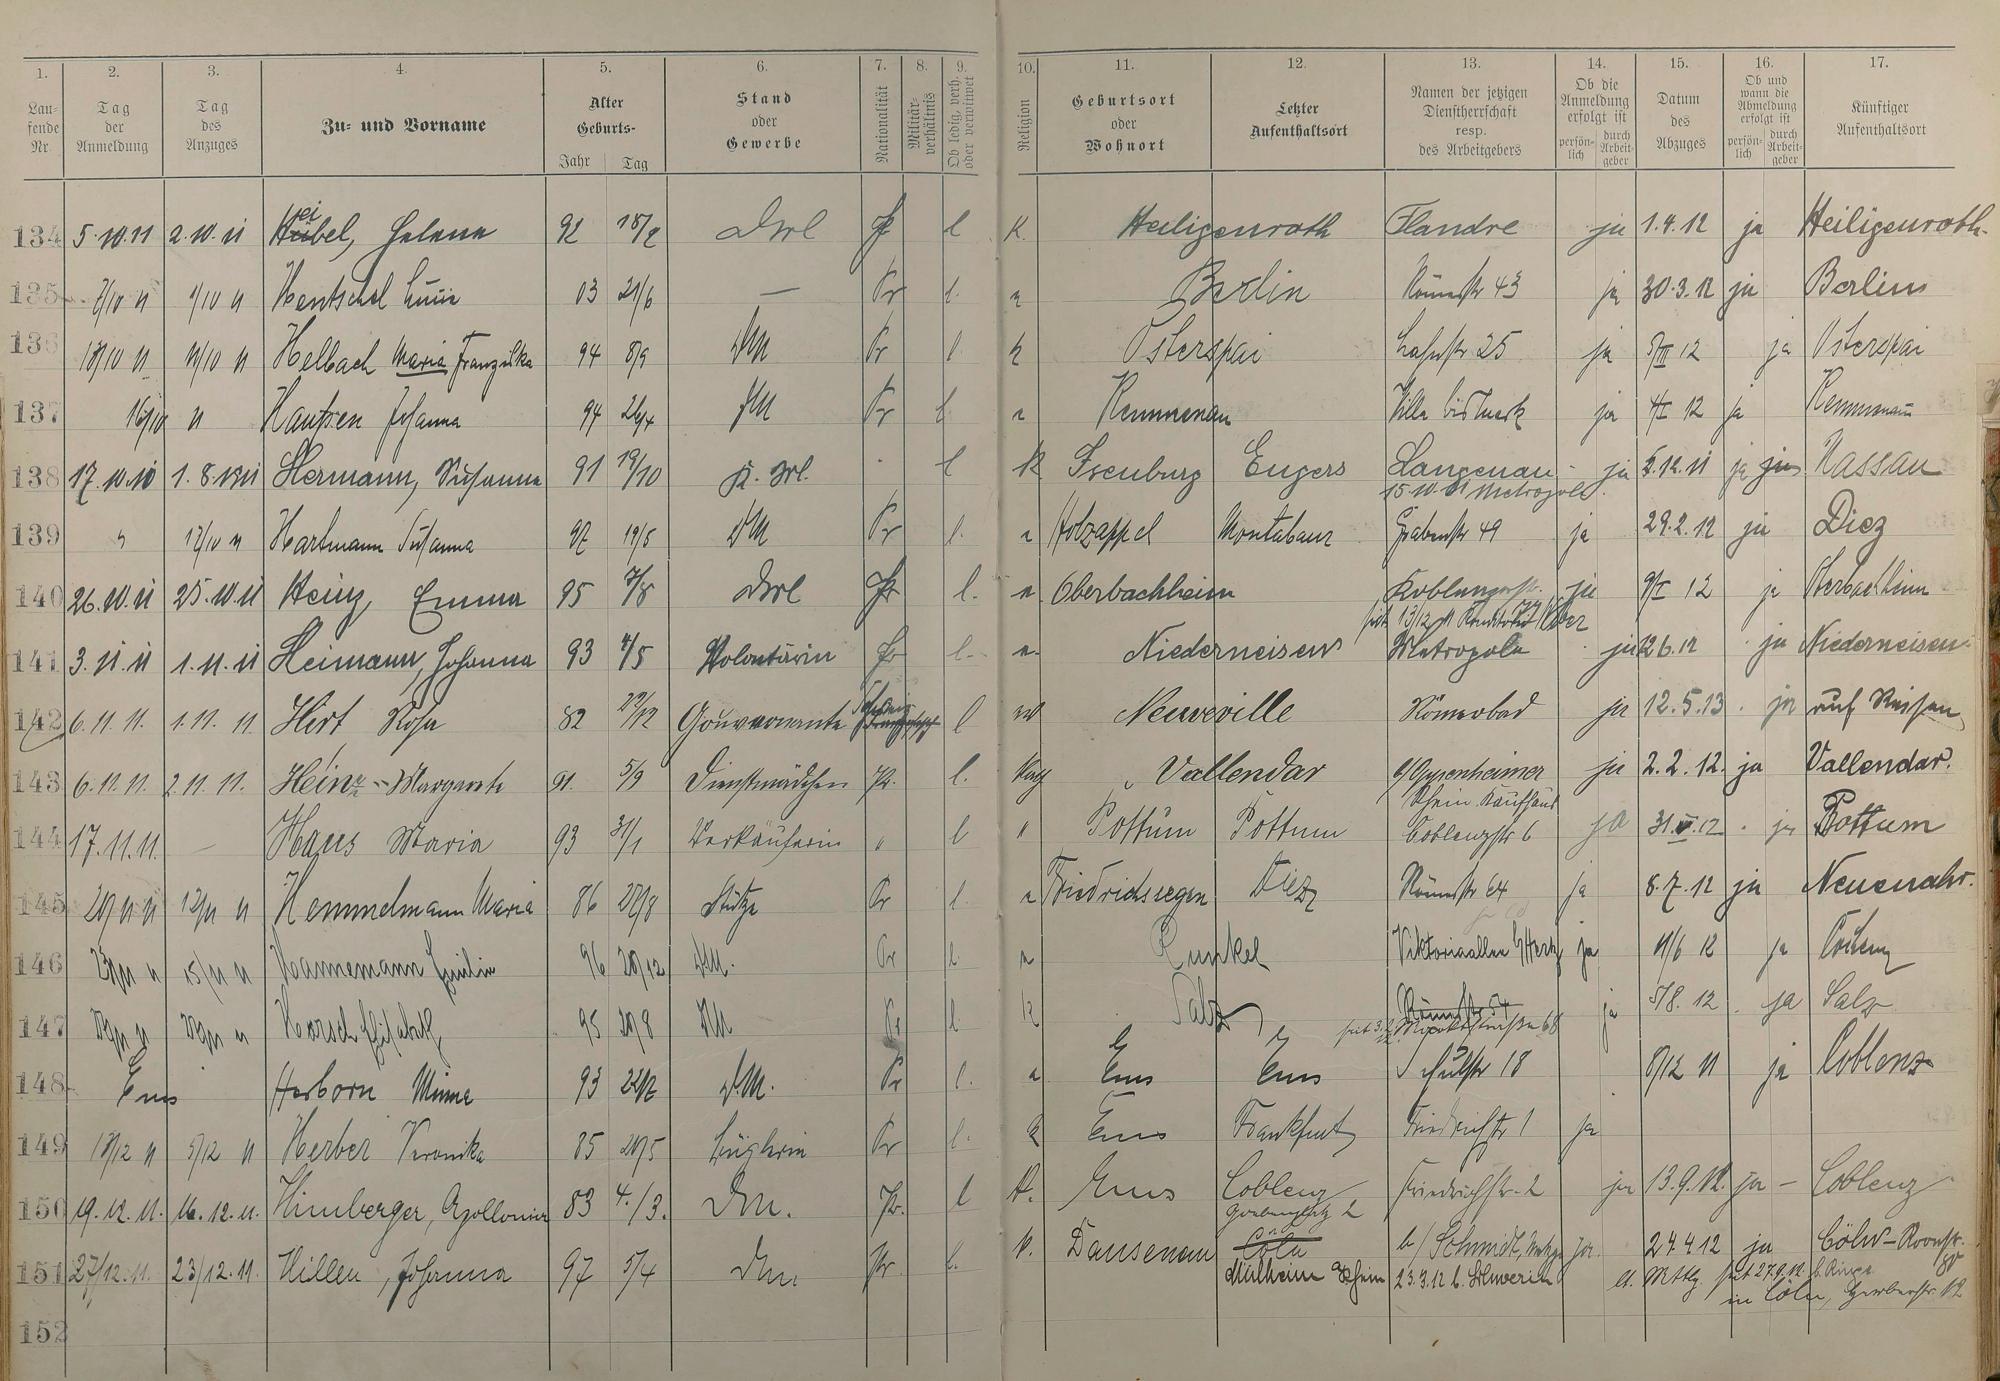 1. 2. 3. 4. 5. 6. 7. 8. 9. 10. 11. 12. 13. 14. 15. 16. 17.
Lau-
fende
Nr.
Tag
der
Anmeldung
Tag
des
Anzuges
Zu- und Vorname
Alter
Geburts-
Jahr Tag
Stand
oder
Gewerbe
Nationalität
Militär-
verhältnis
Ob ledig, verh.
oder verwitwet
Religion
Geburtsort
oder
Wohnort
Letzter
Aufenthaltsort
Namen der jetzigen
Dienstherrschaft
resp.
des Arbeitgebers
Ob die
Anmeldung
erfolgt ist
persön-
lich
durch
Arbeit-
geber
Datum
des
Abzuges
Ob und
wann die
Abmeldung
erfolgt ist
persön-
lich
durch
Arbeit-
geber
Künftiger
Aufenthaltsort
134 5.10.11 2.10.11 Heibel, Helene 92 18/2 Pr l K. Heiligenroth Flandre ja 1.4.12 ja Heiligenroth
135 7/10 11 1/10 11 Hentschel 03 21/6 — Pr l. Berlin Römerstr 43 ja 30.3.12 ja Berlin
136 11 11 Helbach Maria Franziska 94 8/9 DM Pr l k Osterspai Lahnstr 25 ja 12 ja Osterspai
137 16/10 11 Johanna 94 DM Pr l. Kemmenau Villa Bismark ja 12 ja Kemmenau
138 17.10.11 Hermann, Susanna 91 19/10 l K Isenburg Engers Langenau ja 5.12.11 ja Nassau
Metropole
139 " 17/10 11 Hartmann Susanna 97 19/5 DM Pr l. Holzappel Montabaur Grabenstr 49 ja 29.2.12 ja Diez
140 26.10.11 25.10.11 Heinz, Emma 95 7/8 Pr l. Oberbachheim ja 12 ja Oberbachheim
13/12 11
141 3.11.11 1.11.11 Heimann, Johanna 93 4/5 Volontärin Pr l. Niederneisen Metropole ja 12 ja Niederneisen
142 6.11.11. 1.11.11 Hirt Rosa 82 29/12 Gouvernante Schweiz l Neuveville Römerbad ja 12.5.13. ja auf Reisen
143 6.11.11. 2.11.11. Heinz Margarete 91. 5/9 Dienstmädchen Pr. l. Vallendar b/Oppenheimer ja 2.2.12. ja Vallendar.
Rhein. Kaufhaus
144 17.11.11. — Haus Maria 93 31/1 Verkäuferin " l " Pottum Pottum Coblenzstr 6 ja 12. ja Pottum
145 20/11 11 12/11 11 Hemmelmann Maria 86 Stütze Pr l. Friedrichssegen Diez Römerstr 64 ja 8.7.12 ja Neuenahr.
146 23/11 11 15/11 11 Hannemann Emilie 96 20/12 DM. Pr l. Runkel Viktoriaallee b/Herz ja 11/6 12 ja
147 Elisabeth 95 20/8 DM Pr l k Salz ja 5/8.12. ja Salz
148 Ems Herborn Minna 93 DM. Pr l. Ems Ems Schulstr 18 8/12 11 ja Coblenz
149 11 5/12 11 Herber Veronika 85 20/5 Büglerin Pr l. k Ems Frankfurt Friedrichstr 1 ja
150 19.12.11. 16.12.11. Himberger, Apollonia 83 4./3. Dm. Pr. l K. Ems Coblenz Friedrichstr. 2 ja 13.9.12. ja — Coblenz
151 27/12.11. 23/12.11. Hillen, Johanna 97 5/4 Dm. Pr. l. K. Dausenau Cöln b/Schmidt, ja. 24.4.12 ja Cöln-Roonstr.
Mülheim Rhein 23.3.12 b. Schwerin
in Cöln,
152